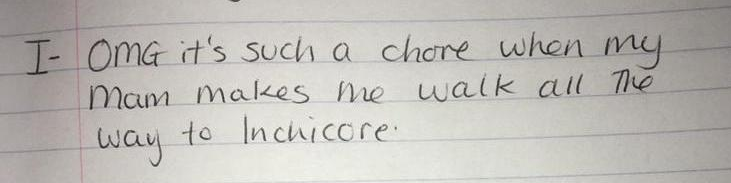 I- OMG it's such a chore when my
mam makes me walk all the
way to Inchicore.